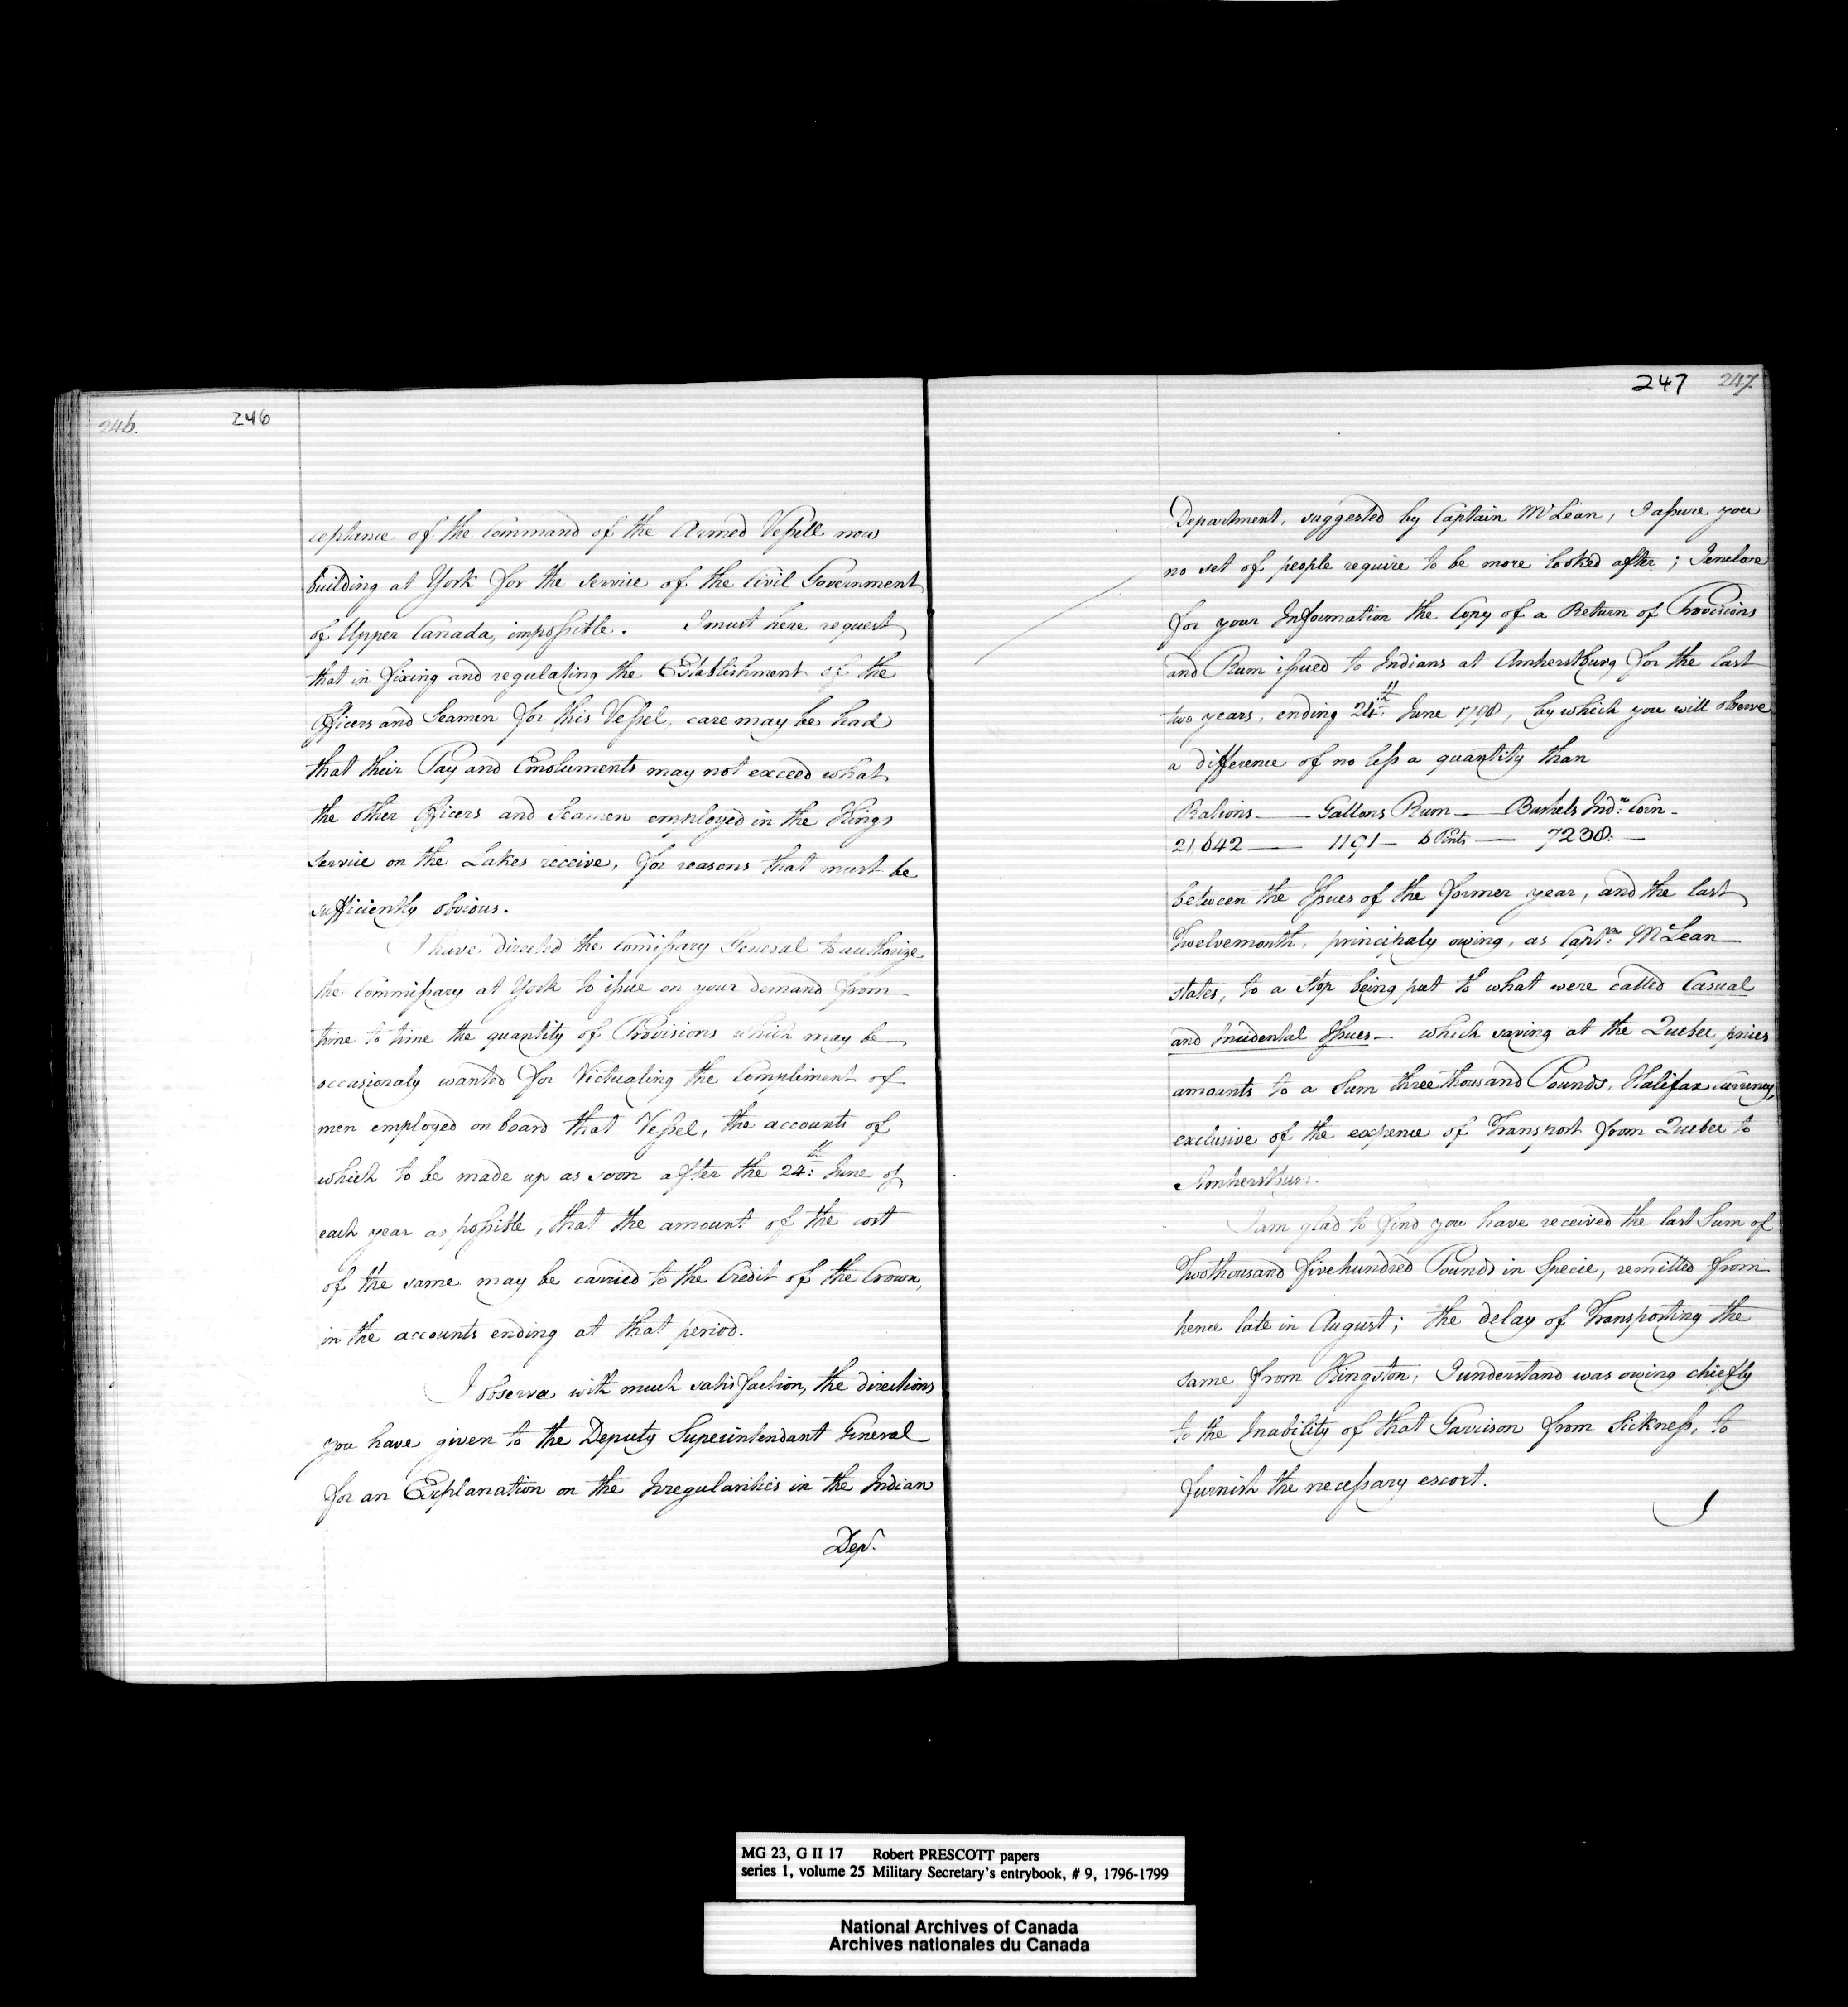 246.
246
ceptance of the Command of the Armed Vessell now
building at York for the service of the Civil Government
of Upper Canada, impossible. I must here request
that in fixing and regulating the Establishment of the
Officers and Seamen for this Vessel, care may be had
that their Pay and Emoluments may not exceed what
the other Officers and Seamen employed in the Kings
service on the Lakes receive, for reasons that must be
sufficiently obvious.
I have directed the Comissary General to authorize
the Commissary at York to issue on your demand from
time to time the quantity of Provisions which may be
occasionaly wanted for Victualing the Compliment of
men employed on board that Vessel, the accounts of
which to be made up as soon after the 24th June of
each year as possible, that the amount of the cost
of the same may be carried to the Credit of the Crown,
in the accounts ending at that period.
I observe with much satisfaction, the directions
you have given to the Deputy Superintendant General
for an Explanation on the Irregularities in the Indian
Dept.
247
247.
Department, suggested by Captain McLean, I assure you
no set of people require to be more looked after; I enclose
for your Information the Copy of a Return of Provisions
and Rum issued to Indians at Amherstburg for the last
two years, ending 24th June 1798, by which you will observe
a difference of no less a quantity than
Rations — Gallons Rum — Bushels Indn: Corn -
21,642 — 1191 — 6 Pints — 7238. —
between the Issues of the former year, and the last
Twelvemonth, principaly owing, as Captn: McLean
states, to a stop being put to what were called Casual
and Incidental Issues — which saving at the Quebec prices
amounts to a Sum three thousand Pounds, Halifax Currency,
exclusive of the expence of Transport from Quebec to
Amherstburg.
I am glad to find you have received the last Sum of
Twothousand fivehundred Pounds in Specie, remitted from
hence late in August; the delay of Transporting the
same from Kingston, I understand was owing chiefly
to the Inability of that Garrison from Sickness, to
furnish the necessary escort.
I
MG 23, G II 17 Robert PRESCOTT papers
series 1, volume 25 Military Secretary's entrybook, # 9, 1796-1799
National Archives of Canada
Archives nationales du Canada